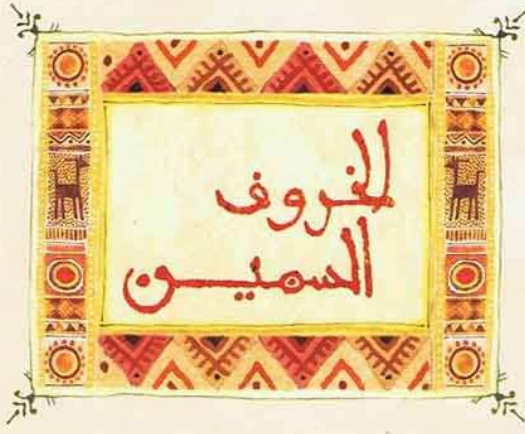 الخروف
السمين